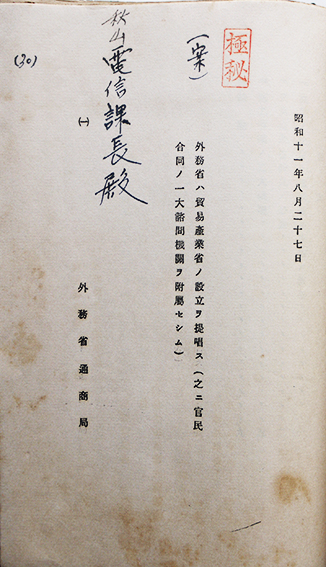 極秘
昭和十一年八月二十七日
(案)
外務省ハ貿易產業省ノ設立ヲ提唱ス(之ニ官民
合同ノ一大諮問機關ヲ附屬セシム)
秋山電信課長殿
(一)
外務省通商局
(30)